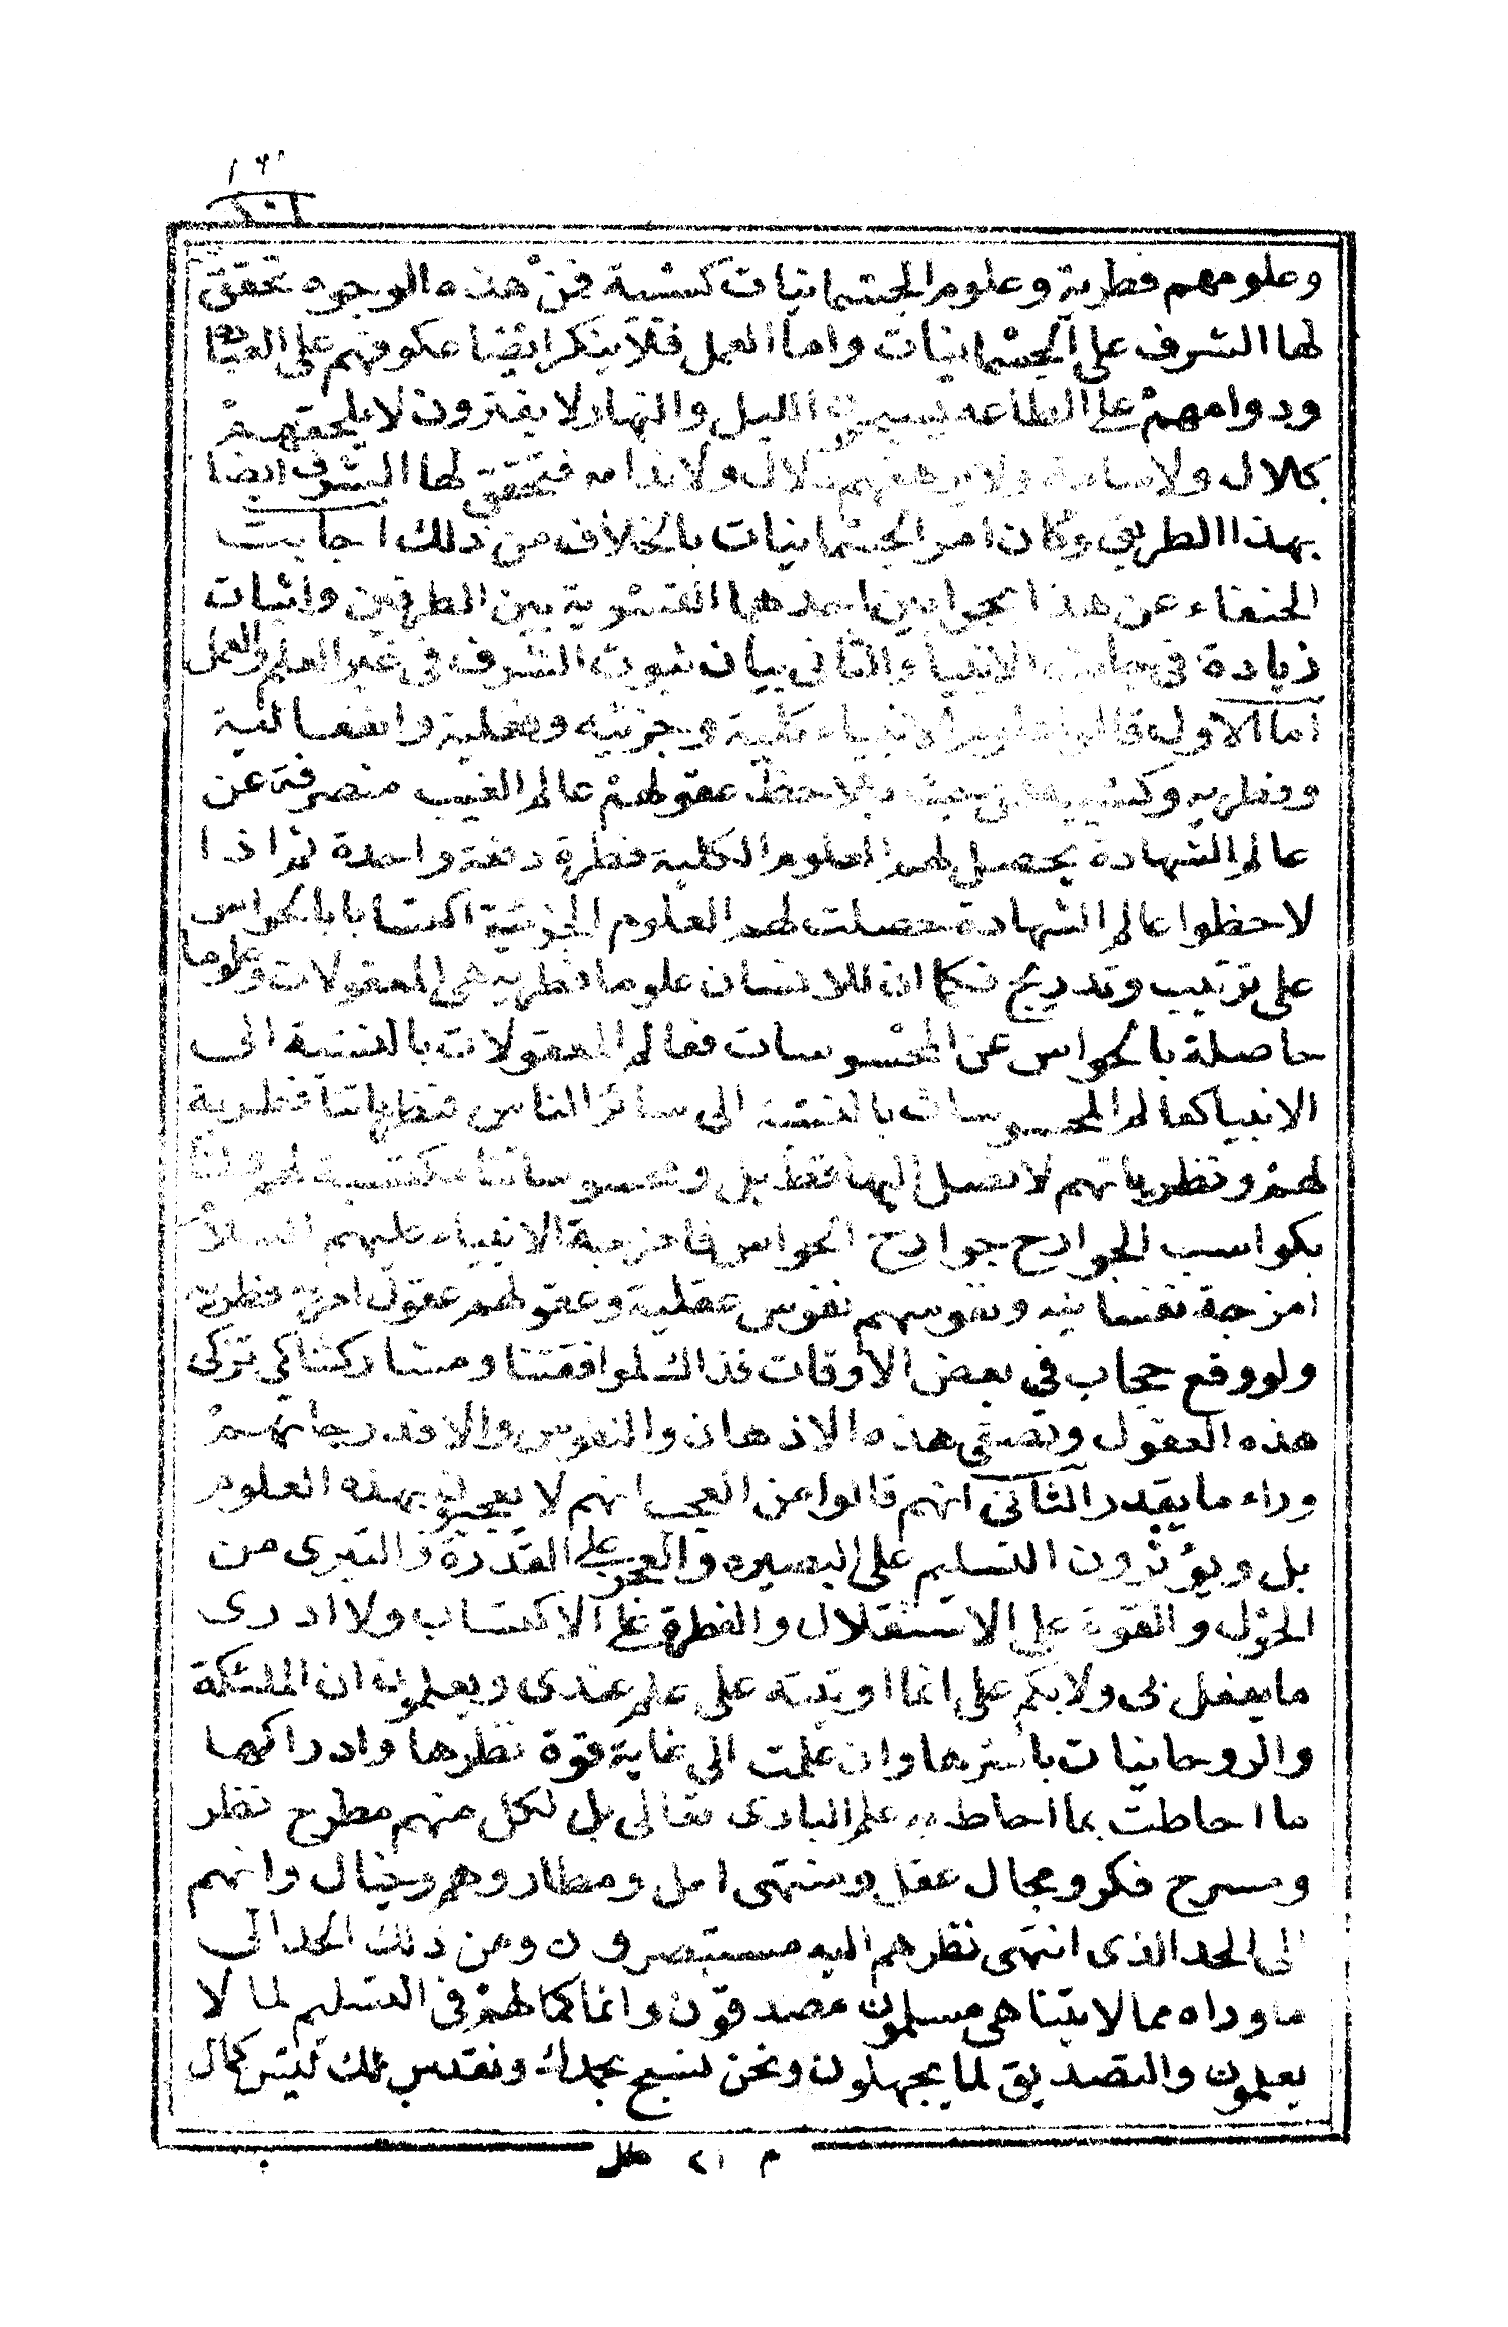 ١٦١
وعلومهم فطرية وعلوم الجسمانيات كسبية فمن هذه الوجوه تحقق
لها الشرف على الجسمانيات واما العمل فلا ينكر ايضا عكوفهم على العبادة
ودوامهم على الطاعه يسبحون الليل والنهار لا يفترون لا يلحقهم
كلال ولا سامة ولا يرهقهم ملال ولا ندامه فتحقق لها الشرف ايضا
بهذا الطريق وكان امر الجسمانيات بالخلاف من ذلك اجابت
الحنفاء عن هذا بجوابين احدهما التسوية بين الطرفين واثبات
زيادة في جانب الانبيا والثاني بيان ثبوت الشرف في غير العلم والعمل
اما الاول قالوا علوم الانبياء كلية وجزئيه وفعلية وانفعالية
وفطريه وكسبيه فمن حيث تلاحظ عقولهم عالم الغيب منصرفة عن
عالم الشهادة يحصل لهم العلوم الكلية فطرة دفعة واحدة ثم اذا
لاحظوا عالم الشهادة حصلت لهم العلوم الجزئية اكتسابا بالحواس
على ترتيب وتدريج فكما ان للانسان علوما نظريه هي المعقولات وعلوما
حاصلة بالحواس عن المحسوسات فعالم المعقولات بالنسبة الى
الانبيا كعالم المحسوسات بالنسبة الى سائر الناس فنظرياتنا فطرية
لهم ونظرياتهم لا نصل اليها قط بل ومحسوساتنا مكتسبة لهم ولنا
بكواسب الجوارح جوارح الحواس فامزجة الانبياء عليهم السلام
امزجة نفسانيه ونفوسهم نفوس عقلية وعقولهم عقول امرية فطرية
ولو وقع حجاب في بعض الاوقات فذاك لموافقتنا ومشاركتنا كي تزكى
هذه العقول وتصفى هذه الاذهان والنفوس والا فدرجاتهم
وراء ما يقدر الثاني انهم قالوا من العجب انهم لا يعجبون بهذه العلوم
بل ويؤثرون التسليم على البصيره والعجز على القدرة والتبرى من
الحول والقوة على الاستقلال والفطرة على الاكتساب ولا ادرى
ما يفعل بي ولا بكم على انما اوتيته على علم عندى ويعلمون ان الملئكة
والروحانيات باسرها وان علمت الى غاية قوة نظرها وادراكها
ما احاطت بما احاط به علم البارى تعالى بل لكل منهم مطرح نظر
ومسرح فكر ومجال عقل ومنتهى امل ومطار وهم وخيال وانهم
الى الحد الذى انتهى نظرهم اليه مستبصرون ومن ذلك الحد الى
ما وراه مما لا يتناهى مسلمون مصدقون وانما كمالهم في التسليم لما لا
يعلمون والتصديق لما يجهلون ونحن نسبح بحمدك ونقدس لك ليس كمال
م ٢١ ملل